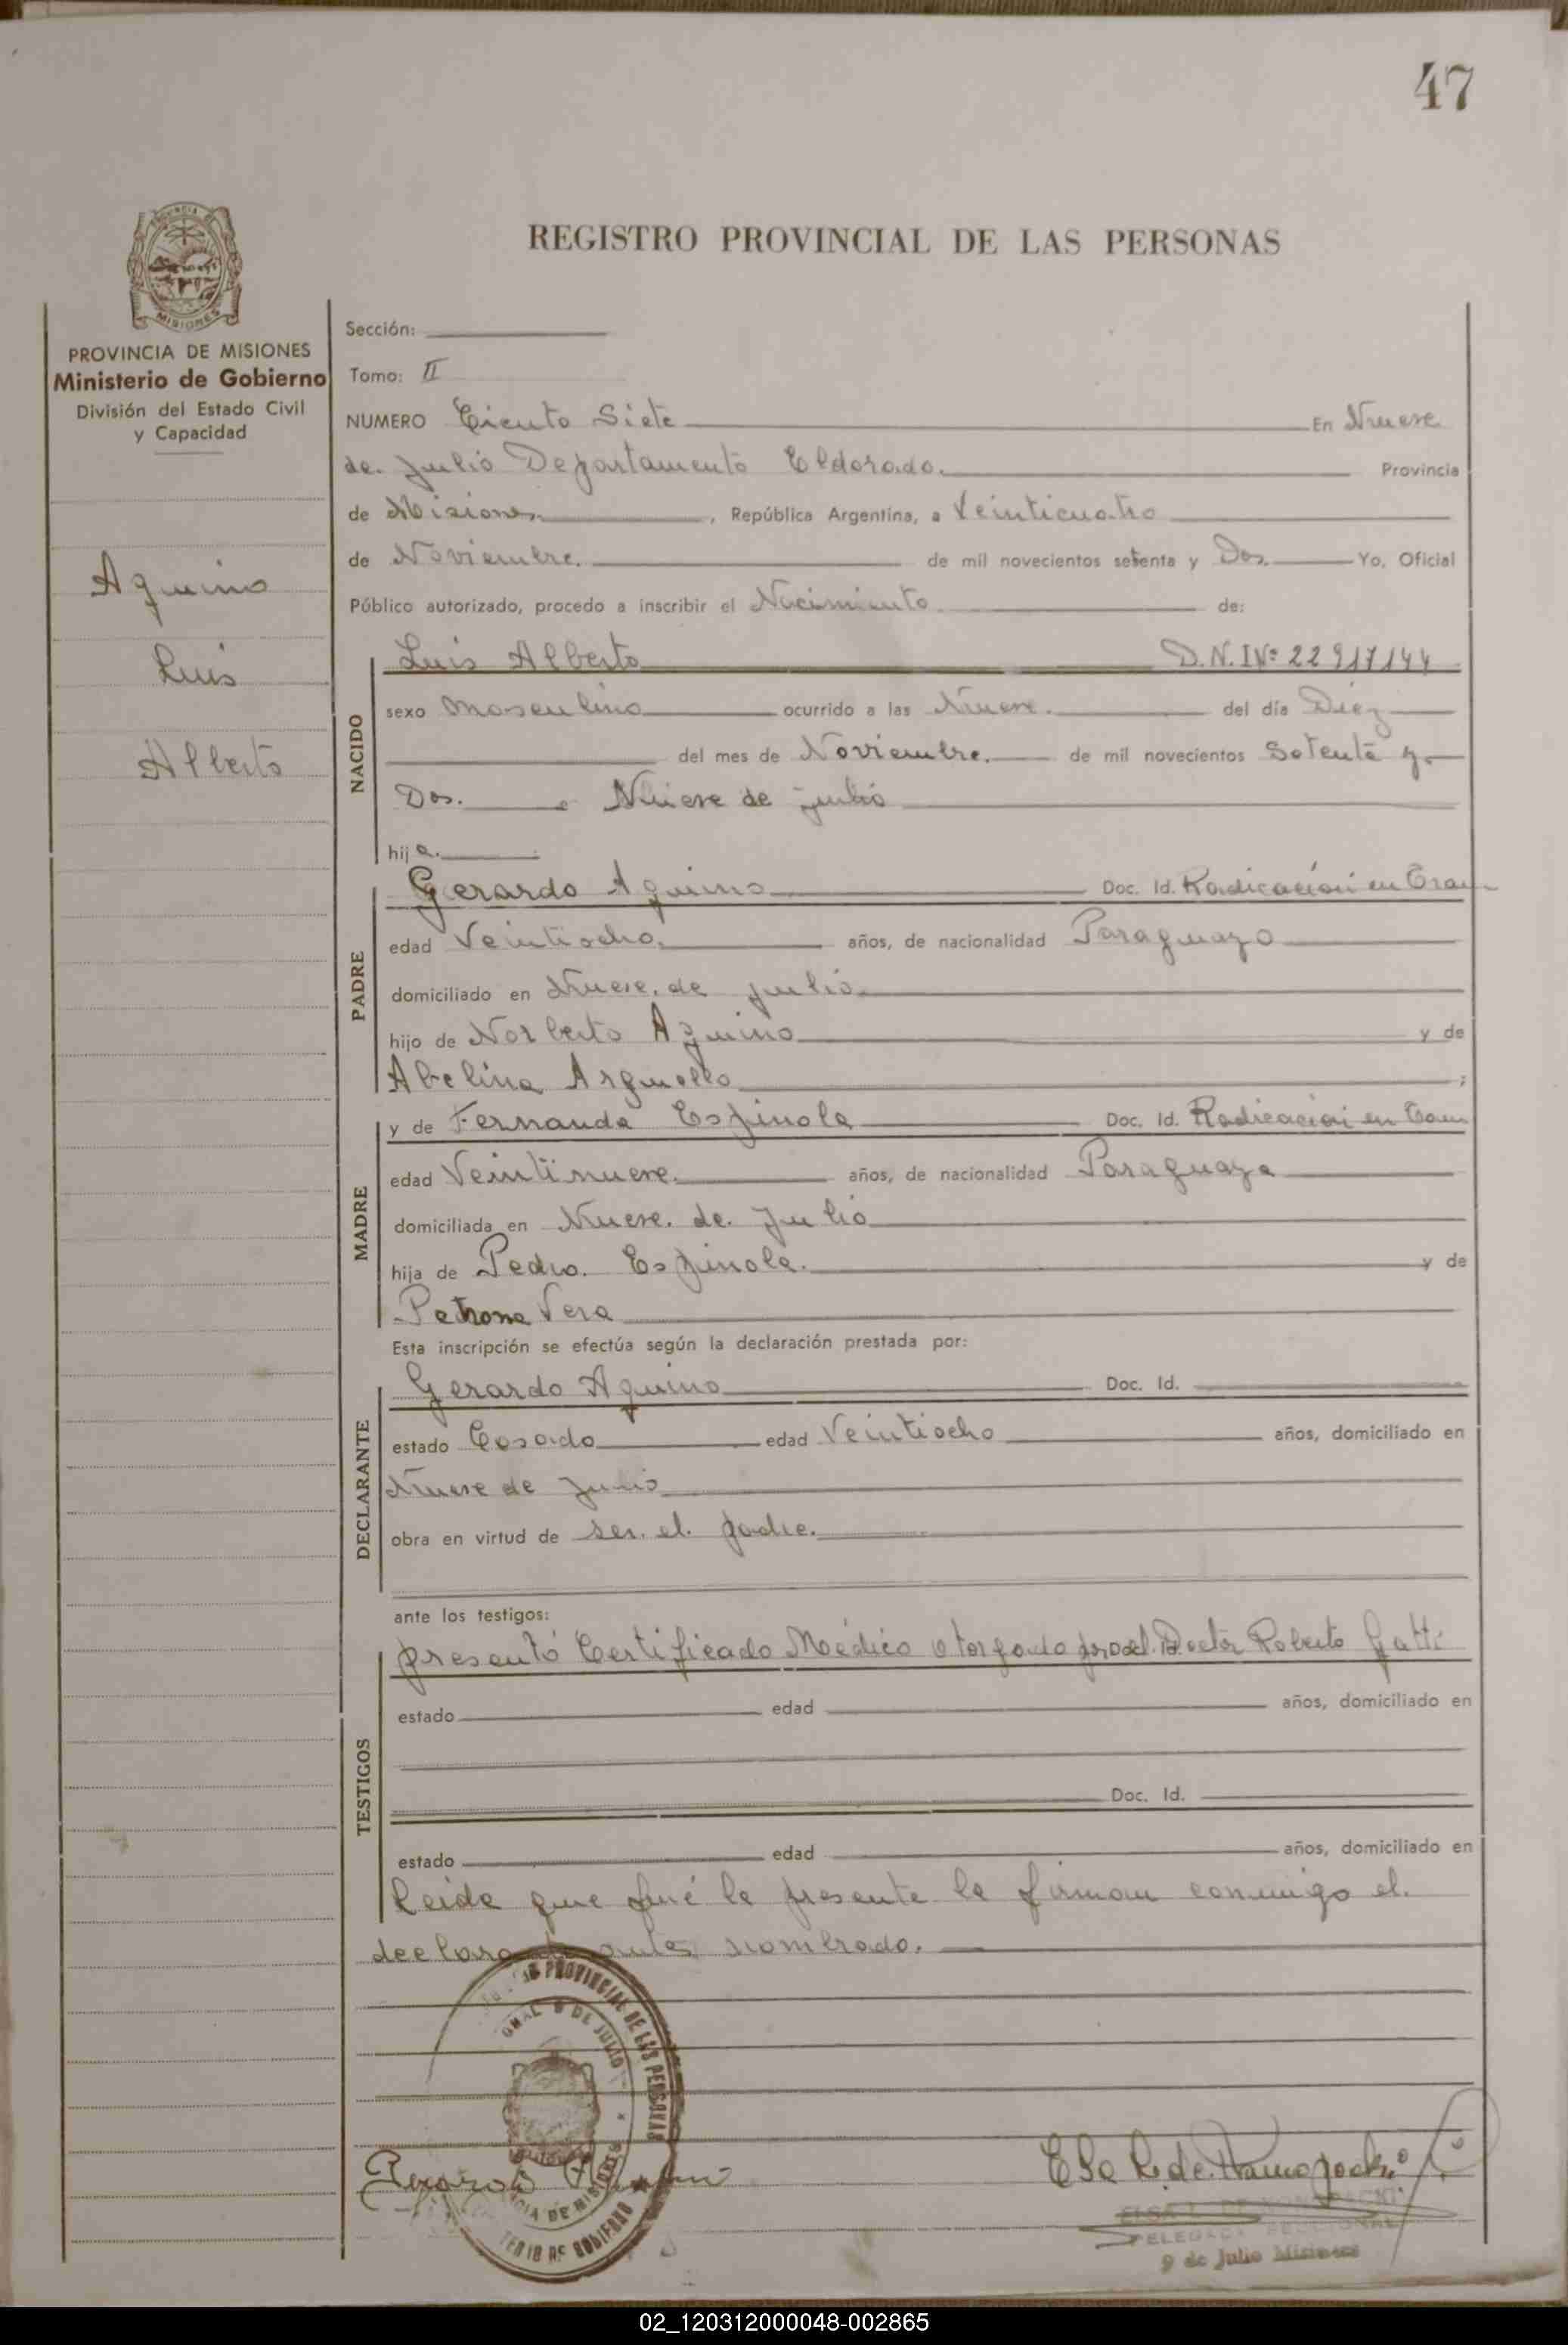 47
REGISTRO PROVINCIAL DE LAS PERSONAS
PROVINCIA DE
MISIONES
PROVINCIA DE MISIONES
Ministerio de Gobierno
División del Estado Civil
y Capacidad
Aquino
Luis
Alberto
Sección:
Tomo: II
NUMERO Ciento Siete En Nueve
de Julio Departamento Eldorado. Provincia
de Misiones, República Argentina, a Veinticuatro
de Noviembre. de mil novecientos setenta y Dos. Yo, Oficial
Público autorizado, procedo a inscribir el Nacimiento de:
NACIDO
Luis Alberto D.N.I Nº 22917144
sexo Masculino ocurrido a las Nueve. del día Diez
del mes de Noviembre. de mil novecientos Setenta y
Dos. Nueve de Julio
hij
PADRE
Gerardo Aquino Doc. Id. Radicación en
edad Veintiocho. años, de nacionalidad Paraguayo
domiciliado en Nueve de Julio
hijo de Norberto Aquino y de
Abelina Arguello ;
MADRE
y de Fernanda Espinola Doc. Id. Radicación en
edad Veintinueve. años, de nacionalidad Paraguaya
domiciliada en Nueve. de. Julio
hija de Pedro. Espinola. y de
Petrona Vera
Esta inscripción se efectúa según la declaración prestada por:
DECLARANTE
Gerardo Aquino Doc. Id.
estado Casado edad Veintiocho años, domiciliado en
Nueve de Julio
obra en virtud de ser. el. padre.
ante los testigos:
TESTIGOS
presentó Certificado Médico otorgado por el Doctor Roberto Gatti
estado edad años, domiciliado en
Doc. Id.
estado edad años, domiciliado en
leida que fué la presente la firman conmigo el.
antes nombrado.
PROVINCIAL DE LAS PERSONAS
9 DE JULIO
DE MISIONES
GOBIERNO
9 de Julio Misiones
02_120312000048-002865